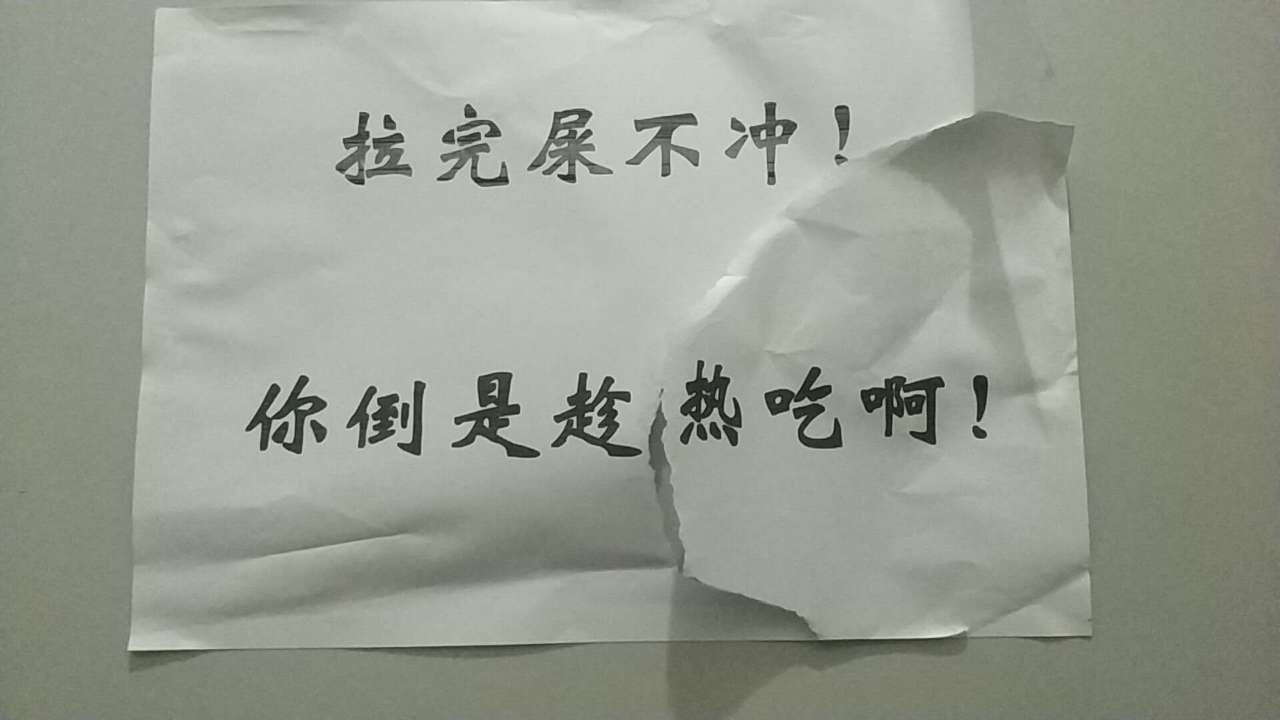 拉完屎不冲！
你倒是趁热吃啊！